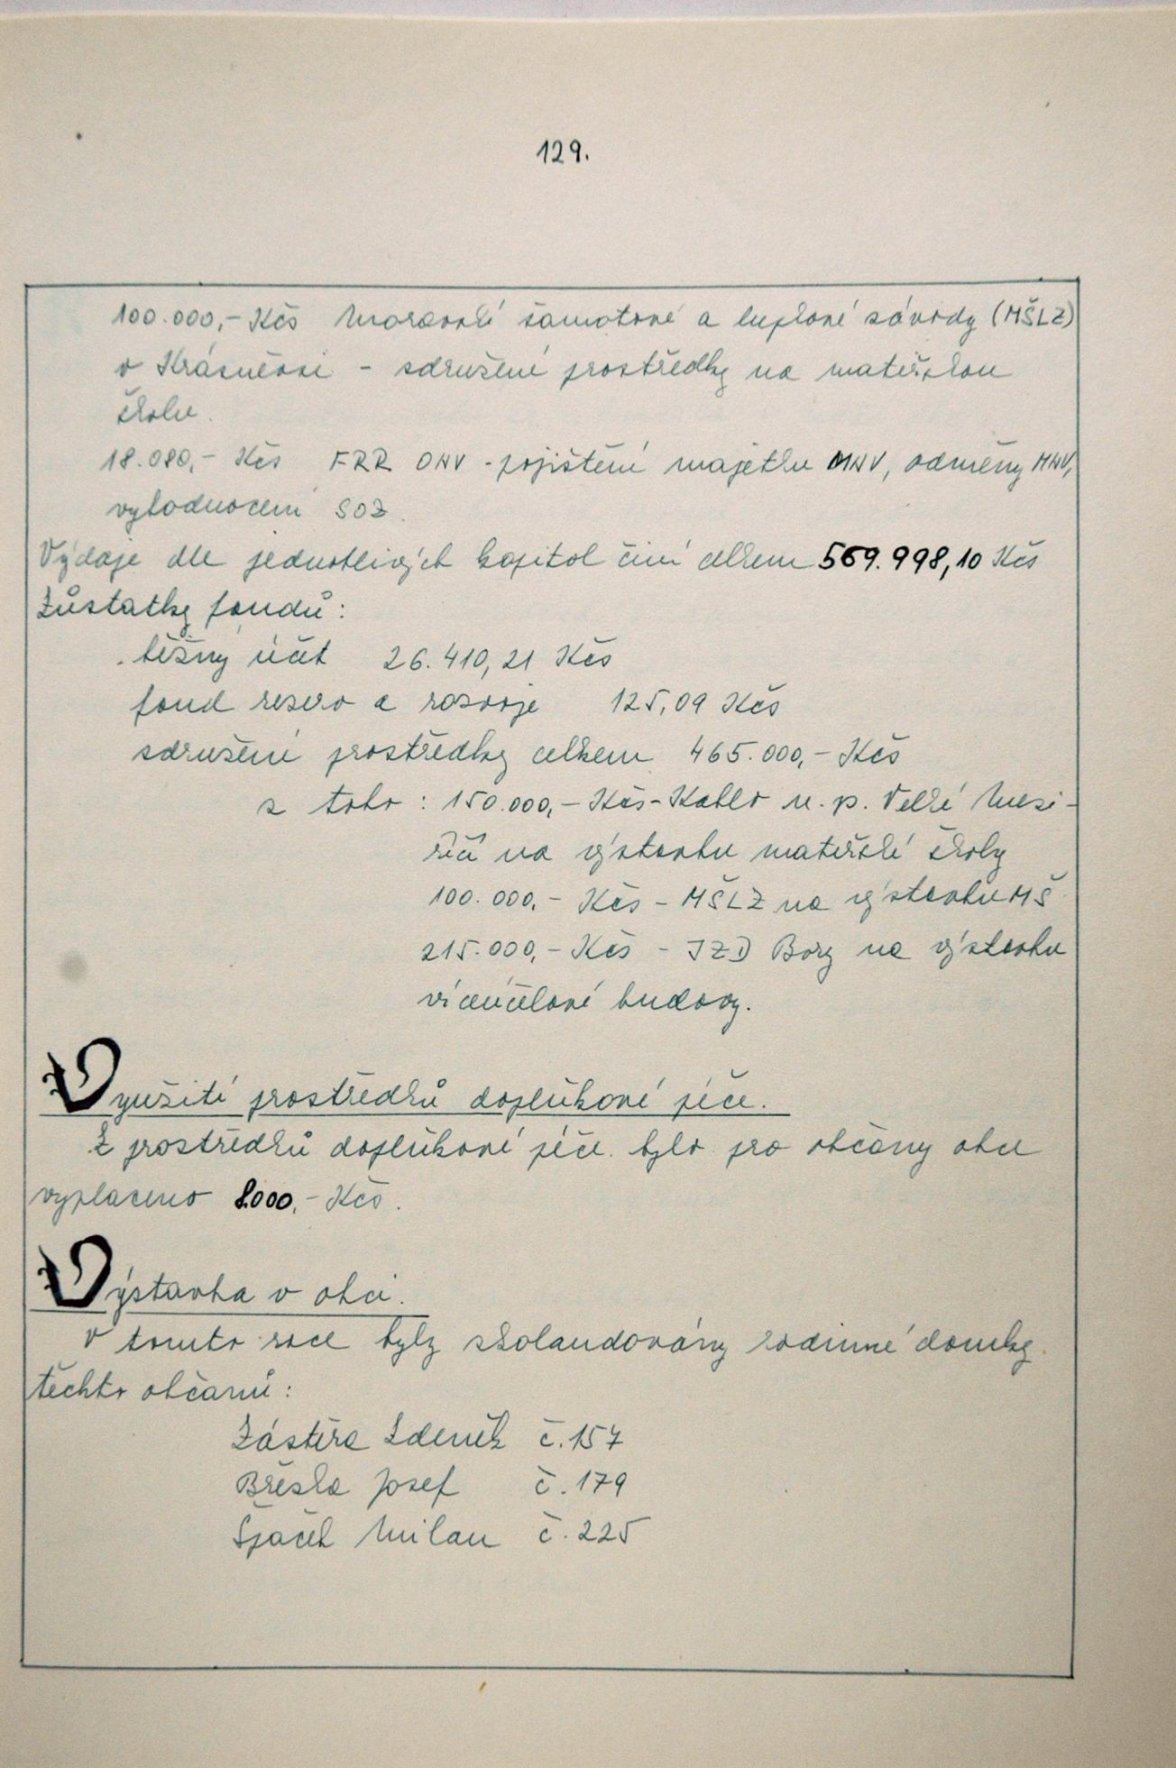 129.
100.000,- Kčs Moravské šamotové a lupkové závody (MŠLZ)
v Krásněvsi - sdružené prostředky na mateřskou
školu.
18.080,- Kčs FRR ONV - pojištění majetku MNV, odměny MNV,
vyhodnocení SOZ
Výdaje dle jednotlivých kapitol činí celkem 569.998,10 Kčs
Zůstatky fondů:
běžný účet 26.410,21 Kčs
fond rezerv a rozvoje 125,09 Kčs
sdružené prostředky celkem 465.000,- Kčs
z toho: 150.000,- Kčs - Kablo n. p. Velké Mezi-
říčí na výstavbu mateřské školy
100.000,- Kčs - MŠLZ na výstavbu MŠ
215.000,- Kčs - JZD Bory na výstavbu
víceúčelové budovy.
Využití prostředků doplňkové péče.
Z prostředků doplňkové péče bylo pro občany obce
vyplaceno 8.000,- Kčs.
Výstavba v obci.
V tomto roce byly zkolaudovány rodinné domky
těchto občanů:
Zástěra Zdeněk č. 157
Břeska Josef č. 179
Špaček Milan č. 225